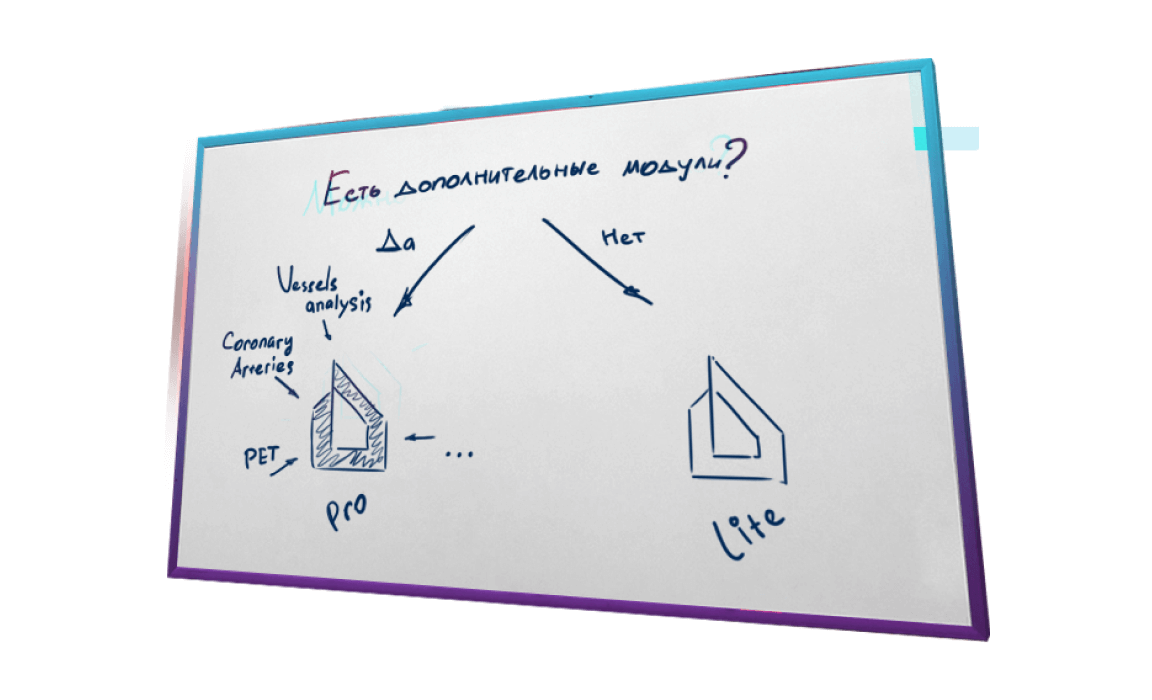 Есть дополнительные модули?
Да
Нет
Vessels
analysis
Coronary
Arteries
PET
...
Pro
Lite